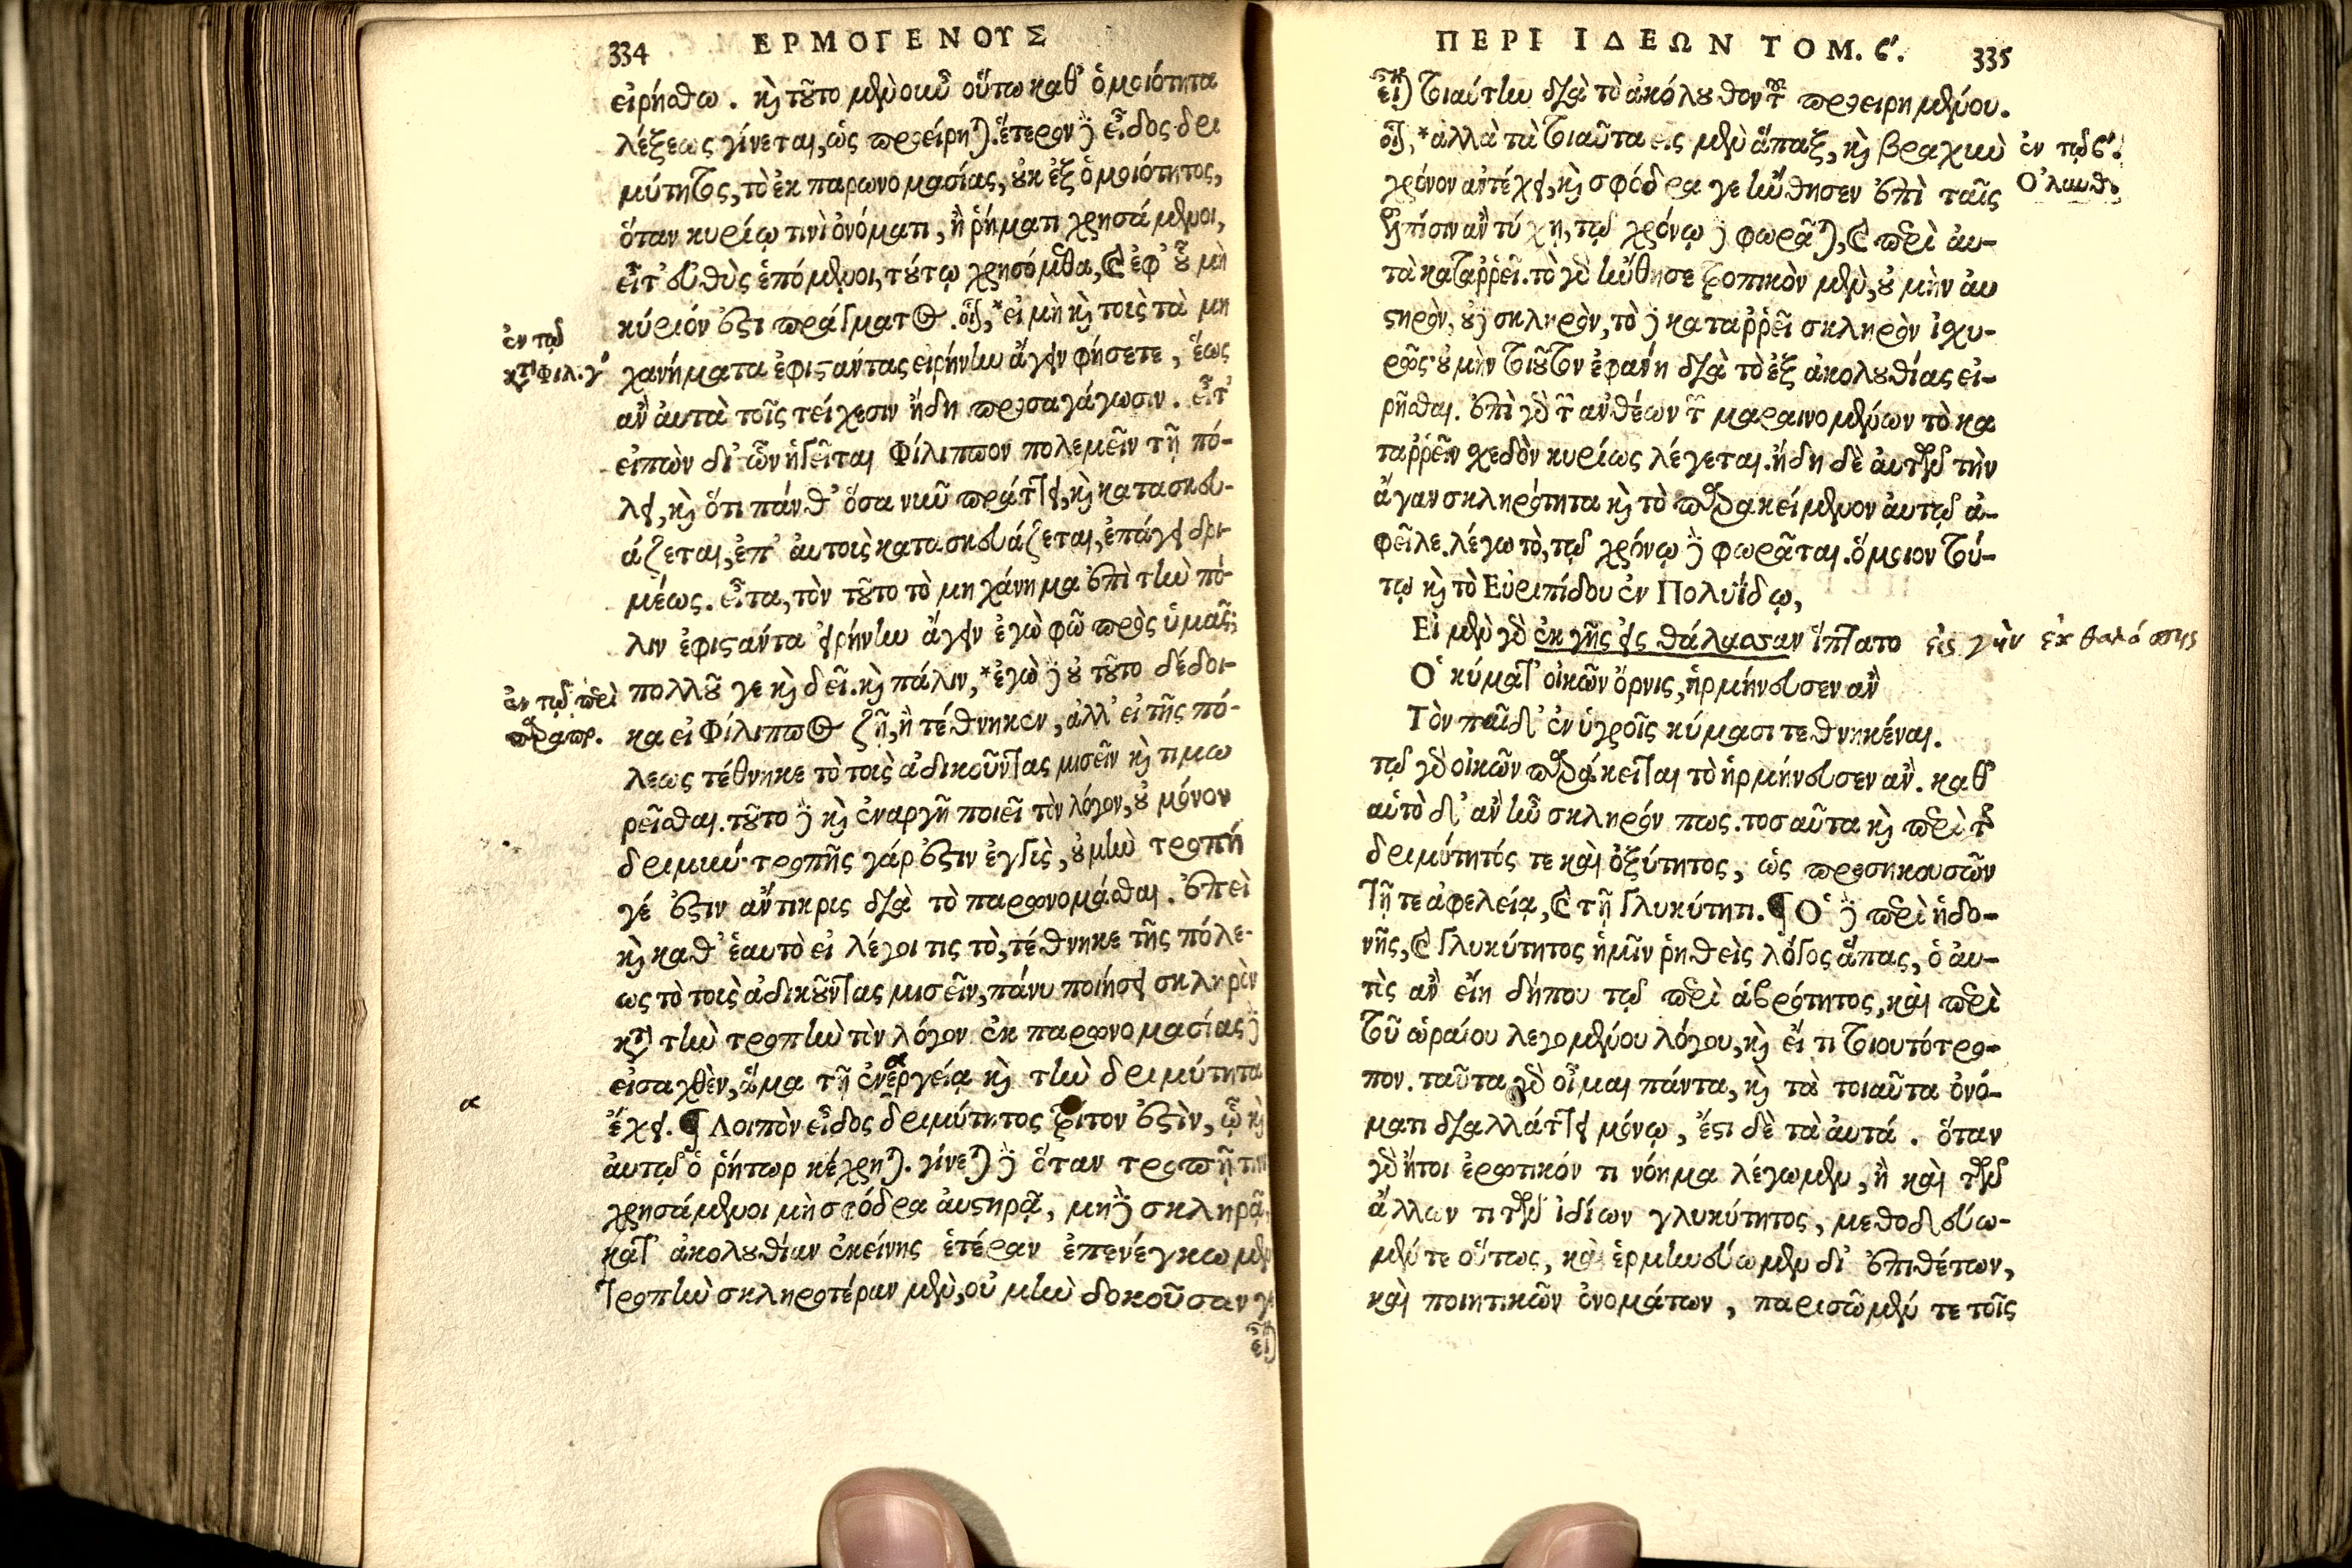 334 ΕΡΜΟΓΕΝΟΥΣ
εἰρήσθω. καὶ τοῦτο μὲν οὖν οὕτω καθ' ὁμοιότητα
λέξεως γίνεται, ὡς προείρηται. ἕτερον δὲ εἶδος δρι
μύτητος, τὸ ἐκ παρωνομασίας, οὐκ ἐξ ὁμοιότητος,
ὅταν κυρίῳ τινὶ ὀνόματι, ἢ ῥήματι χρησάμενοι,
εἶτ' εὐθὺς ἑπόμενοι, τούτῳ χρησόμεθα, καὶ ἐφ' οὗ μὴ
κύριόν ἐστι πράγματος. οἷον, *εἰ μὴ καὶ τοὺς τὰ μη
ἐν τῷ
κτ Φιλ. γ'
χανήματα ἐφιστάντας εἰρήνην ἄγειν φήσετε, ἕως
ἂν αὐτὰ τοῖς τείχεσιν ἤδη προσαγάγωσιν. εἶτ'
εἰπὼν δι' ὧν ἡγεῖται Φίλιππον πολεμεῖν τῇ πό-
λει, καὶ ὅτι πάνθ' ὅσα νῦν πράττει, καὶ κατασκευ-
άζεται, ἐπ' αὐτοὺς κατασκευάζεται, ἐπάγει δρι-
μέως. εἶτα, τὸν τοῦτο τὸ μηχάνημα ἐπὶ τὴν πό-
λιν ἐφιστάντα εἰρήνην ἄγειν ἐγὼ φῶ πρὸς ὑμᾶς;
πολλοῦ γε καὶ δεῖ. καὶ πάλιν, *ἐγὼ δὲ οὐ τοῦτο δέδοι-
ἐν τῷ περὶ
παραπρ.
κα εἰ Φίλιππος ζῇ, ἢ τέθνηκεν, ἀλλ' εἰ τῆς πό-
λεως τέθνηκε τὸ τοὺς ἀδικοῦντας μισεῖν καὶ τιμω
ρεῖσθαι. τοῦτο δὲ καὶ ἐναργῆ ποιεῖ τὸν λόγον, οὐ μόνον
δριμύν· τροπῆς γάρ ἐστιν ἐγγὺς, οὐ μὴν τροπή
γέ ἐστιν ἄντικρις διὰ τὸ παρωνομάσθαι. ἐπεὶ
καὶ καθ' ἑαυτὸ εἰ λέγοι τις τὸ, τέθνηκε τῆς πόλε-
ως τὸ τοὺς ἀδικοῦντας μισεῖν, πάνυ ποιήσει σκληρὸν
κατὰ τὴν τροπὴν τὸν λόγον ἐκ παρωνομασίας δὲ
εἰσαχθὲν, ἅμα τῇ ἐνεργείᾳ καὶ τὴν δριμύτητα
α
α
ἔχει. ¶ Λοιπὸν εἶδος δριμύτητος τρίτον ἐστὶν, ᾧ καὶ
αὐτῷ ὁ ῥήτωρ κέχρηται. γίνεται δὲ ὅταν τροπῇ τινι
χρησάμενοι μὴ σφόδρα αὐστηρᾷ, μηδὲ σκληρᾷ,
κατ' ἀκολουθίαν ἐκείνης ἑτέραν ἐπενέγκωμεν
τροπὴν σκληροτέραν μὲν, οὐ μὴν δοκοῦσαν γε
εἶναι
ΠΕΡΙ ΙΔΕΩΝ ΤΟΜ. ϛ'. 335
εἶναι τοιαύτην διὰ τὸ ἀκόλουθον τῶν προειρημένου.
οἷον, *ἀλλὰ τὰ τοιαῦτα εἰς μὲν ἅπαξ, καὶ βραχὺν
ἐν τῷ ϛ'.
Ὀλυνθ.
χρόνον ἀντέχει, καὶ σφόδρα γε ἤνθησεν ἐπὶ ταῖς
ἐλπίσιν ἂν τύχῃ, τῷ χρόνῳ δὲ φωρᾶται, καὶ περὶ αὐ-
τὰ καταῤῥεῖ. τὸ γὰρ ἤνθησε τροπικὸν μὲν, οὐ μὴν αὐ
στηρὸν, οὐδὲ σκληρὸν, τὸ δὲ καταῤῥεῖ σκληρὸν ἰσχυ-
ρῶς· οὐ μὴν τοιοῦτον ἐφάνη διὰ τὸ ἐξ ἀκολουθίας εἰ-
ρῆσθαι. ἐπὶ γὰρ τῶν ἀνθέων τῶν μαραινομένων τὸ κα
ταῤῥεῖν σχεδὸν κυρίως λέγεται. ἤδη δὲ αὐτῶν τὴν
ἄγαν σκληρότητα καὶ τὸ παρακείμενον αὐτῷ ἀ-
φεῖλε. λέγω τὸ, τῷ χρόνῳ δὲ φωρᾶται. ὅμοιον τού-
τῳ καὶ τὸ Εὐριπίδου ἐν Πολυΐδῳ,
Εἰ μὲν γὰρ ἐκ γῆς εἰς θάλασσαν ἵπτατο
εἰς γῆν ἐκ θαλάσσης
Ὁ κύματ' οἰκῶν ὄρνις, ἡρμήνευσεν ἂν
Τὸν παῖδ' ἐν ὑγροῖς κύμασι τεθνηκέναι.
τῷ γὰρ οἰκῶν παράκειται τὸ ἡρμήνευσεν ἄν. καθ'
αὑτὸ δ' ἂν ἦν σκληρόν πως. τοσαῦτα καὶ περὶ τῆς
δριμύτητός τε καὶ ὀξύτητος, ὡς προσηκουσῶν
τῇ τε ἀφελείᾳ, καὶ τῇ γλυκύτητι. ¶ Ὁ δὲ περὶ ἡδο-
νῆς, καὶ γλυκύτητος ἡμῖν ῥηθεὶς λόγος ἅπας, ὁ αὐ-
τὸς ἂν εἴη δήπου τῷ περὶ ἁβρότητος, καὶ περὶ
τοῦ ὡραίου λεγομένου λόγου, καὶ εἴ τι τοιουτότρο-
πον. ταῦτα γὰρ οἶμαι πάντα, καὶ τὰ τοιαῦτα ὀνό-
ματι διαλλάττει μόνῳ, ἔστι δὲ τὰ αὐτά. ὅταν
γὰρ ἤτοι ἐρωτικόν τι νόημα λέγωμεν, ἢ καὶ τῶν
ἄλλων τι τῶν ἰδίων γλυκύτητος, μεθοδεύω-
μέν τε οὕτως, καὶ ἑρμηνεύωμεν δι' ἐπιθέτων,
καὶ ποιητικῶν ὀνομάτων, παρισῶμέν τε τοῖς